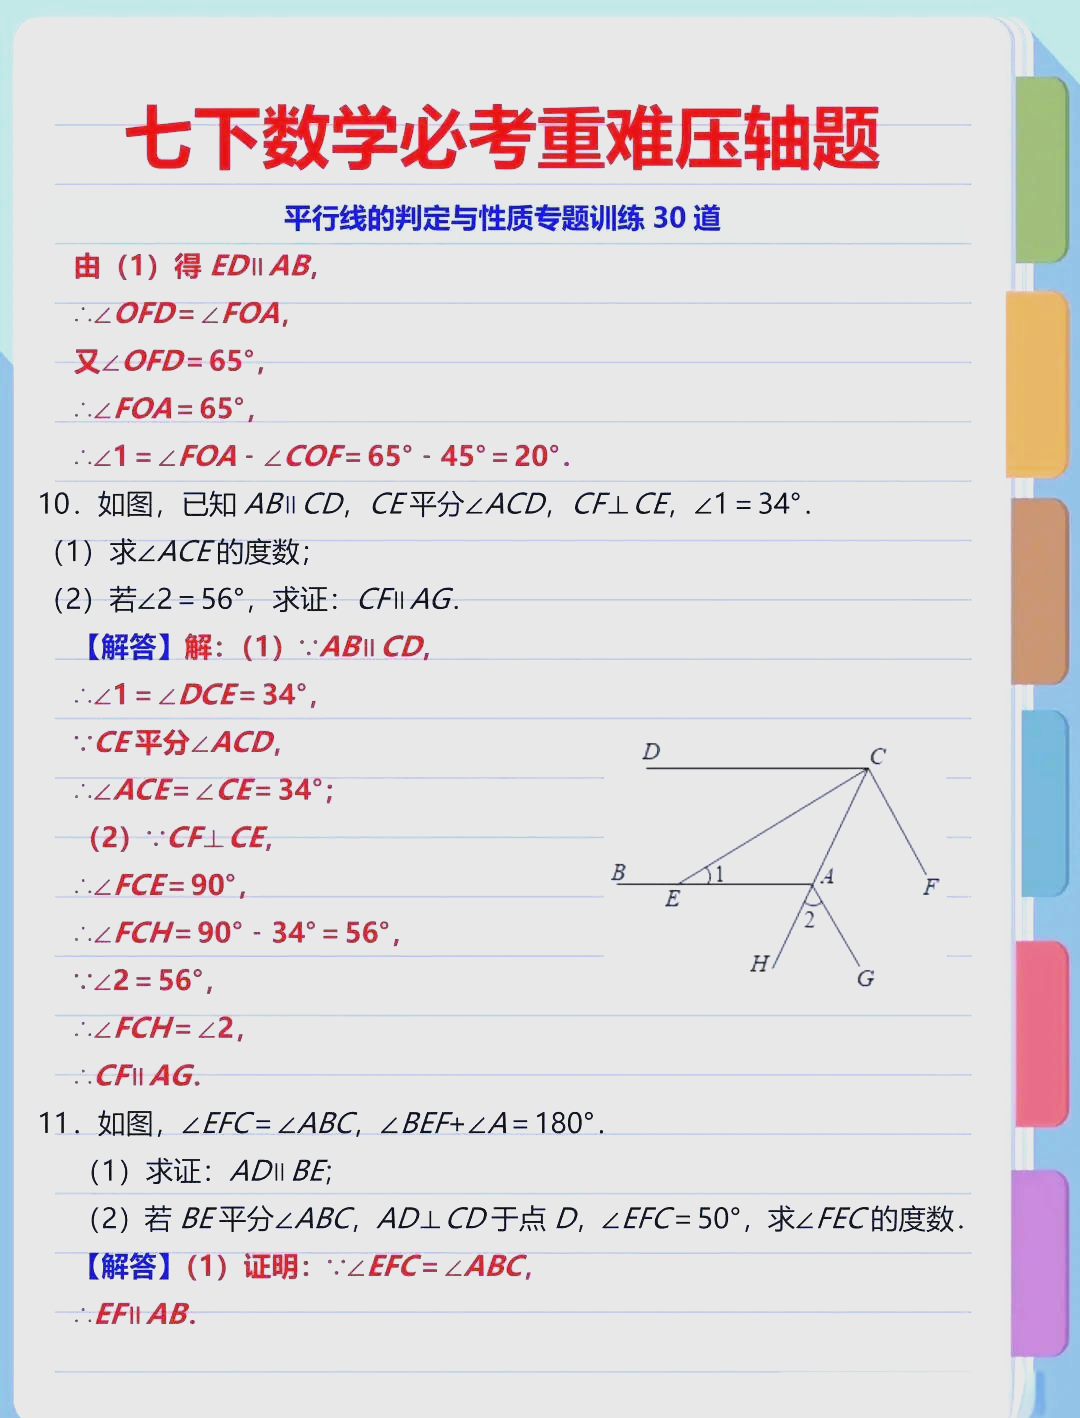 七下数学必考重难压轴题
平行线的判定与性质专题训练 30 道
由（1）得 ED∥AB，
∴∠OFD=∠FOA，
又∠OFD=65°，
∴∠FOA=65°，
∴∠1=∠FOA﹣∠COF=65°﹣45°=20°．
10．如图，已知 AB∥CD，CE平分∠ACD，CF⊥CE，∠1=34°．
（1）求∠ACE的度数；
（2）若∠2=56°，求证：CF∥AG．
【解答】解：（1）∵AB∥CD，
∴∠1=∠DCE=34°，
∵CE平分∠ACD，
∴∠ACE=∠CE=34°；
（2）∵CF⊥CE，
∴∠FCE=90°，
∴∠FCH=90°﹣34°=56°，
∵∠2=56°，
∴∠FCH=∠2，
∴CF∥AG．
D
C
B
E
1
A
F
2
H
G
11．如图，∠EFC=∠ABC，∠BEF+∠A=180°．
（1）求证：AD∥BE；
（2）若 BE平分∠ABC，AD⊥CD于点 D，∠EFC=50°，求∠FEC的度数．
【解答】（1）证明：∵∠EFC=∠ABC，
∴EF∥AB．